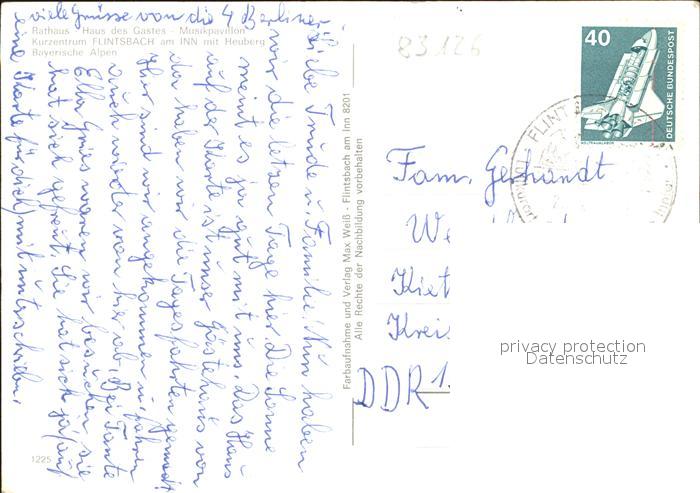 viele Grüsse von die 4 Berliner
Rathaus - Haus des Gastes - Musikpavillon
Kurzentrum FLINTSBACH am INN mit Heuberg
Bayerische Alpen
Liebe Trude u. Familie! Nun haben
wir die letzen Tage hier. Die Sonne
meint es ja gut mit uns. Das Haus
auf der Karte ist unser Gästehaus von
da haben wir die Tagesfahrten gemacht
Hier sind wir angekommen u. fahren
auch wieder von hier ab. Bei Tante
Ella Gries waren wir besuchen, sie
hat sich gefreut. Sie hat sich ja auf
eine Karte für dich mit unterschrieben.
1225
Farbaufnahme und Verlag Max Weiß - Flintsbach am Inn 8201
Alle Rechte der Nachbildung vorbehalten
83126
40
DEUTSCHE BUNDESPOST
WELTRAUMLABOR
FLINT
Fam. Gerhardt
We
Kiet
Krei
DDR 1.
privacy protection
Datenschutz